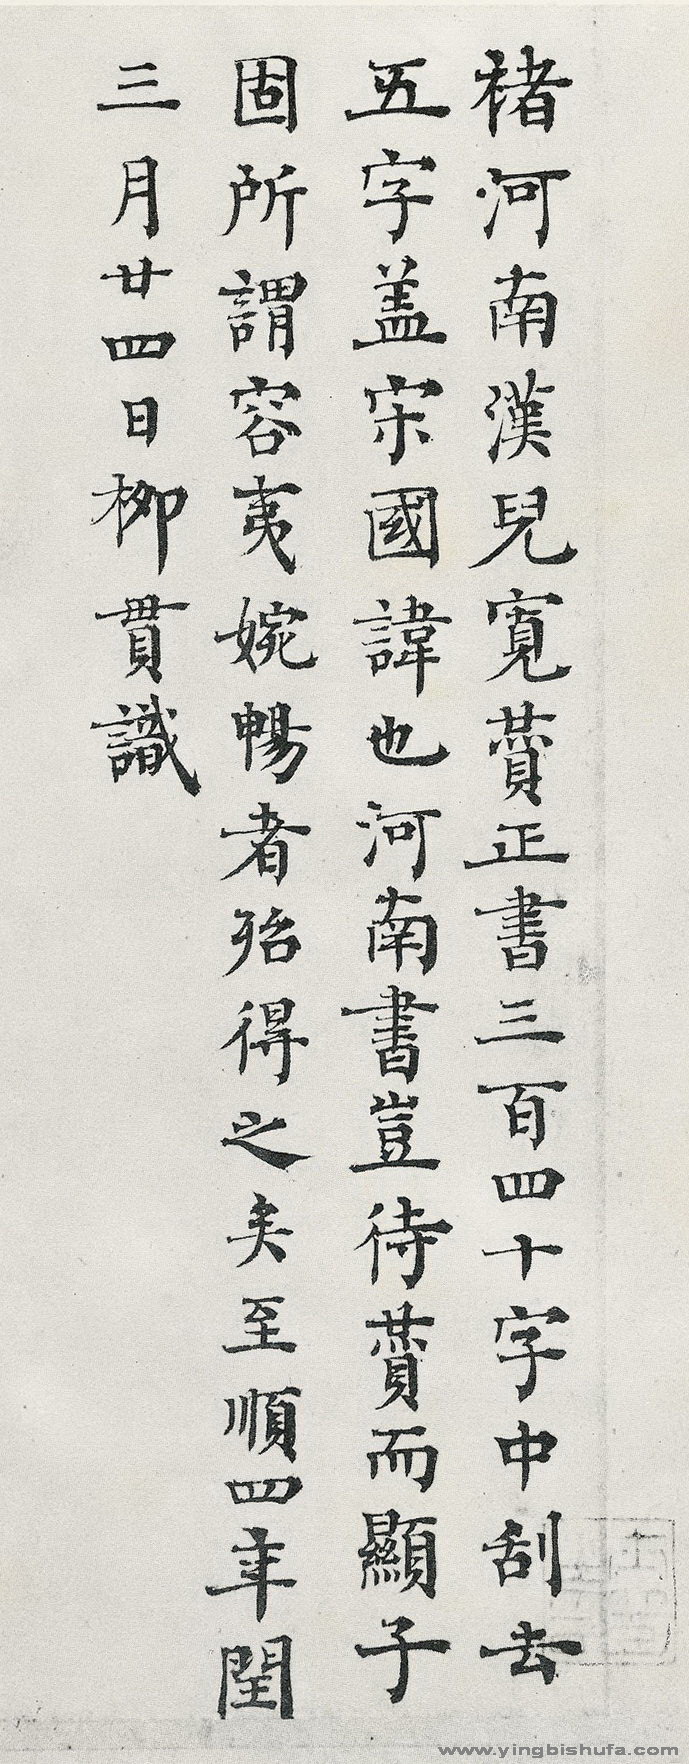 褚河南漢兒寬贊正書三百四十字中刮去
五字蓋宋國諱也河南書豈待贊而顯子
固所謂容夷婉暢者殆得之矣至順四年閏
三月廿四日柳貫識
www.yingbishufa.com